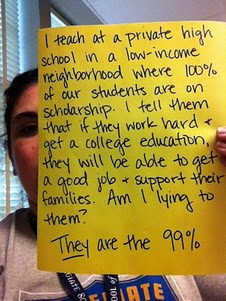 I teach at a private high
school in a low-income
neighborhood where 100%
of our students are on
scholarship. I tell them
that if they work hard +
get a college education,
they will be able to get
a good job + support their
families. Am I lying to
them?
They are the 99%